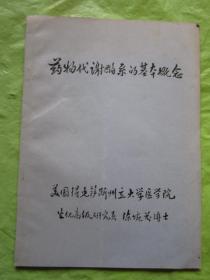 药物代谢酶系的基本概念
美国得克萨斯州立大学医学院
生化高级研究员 徐婉芳博士